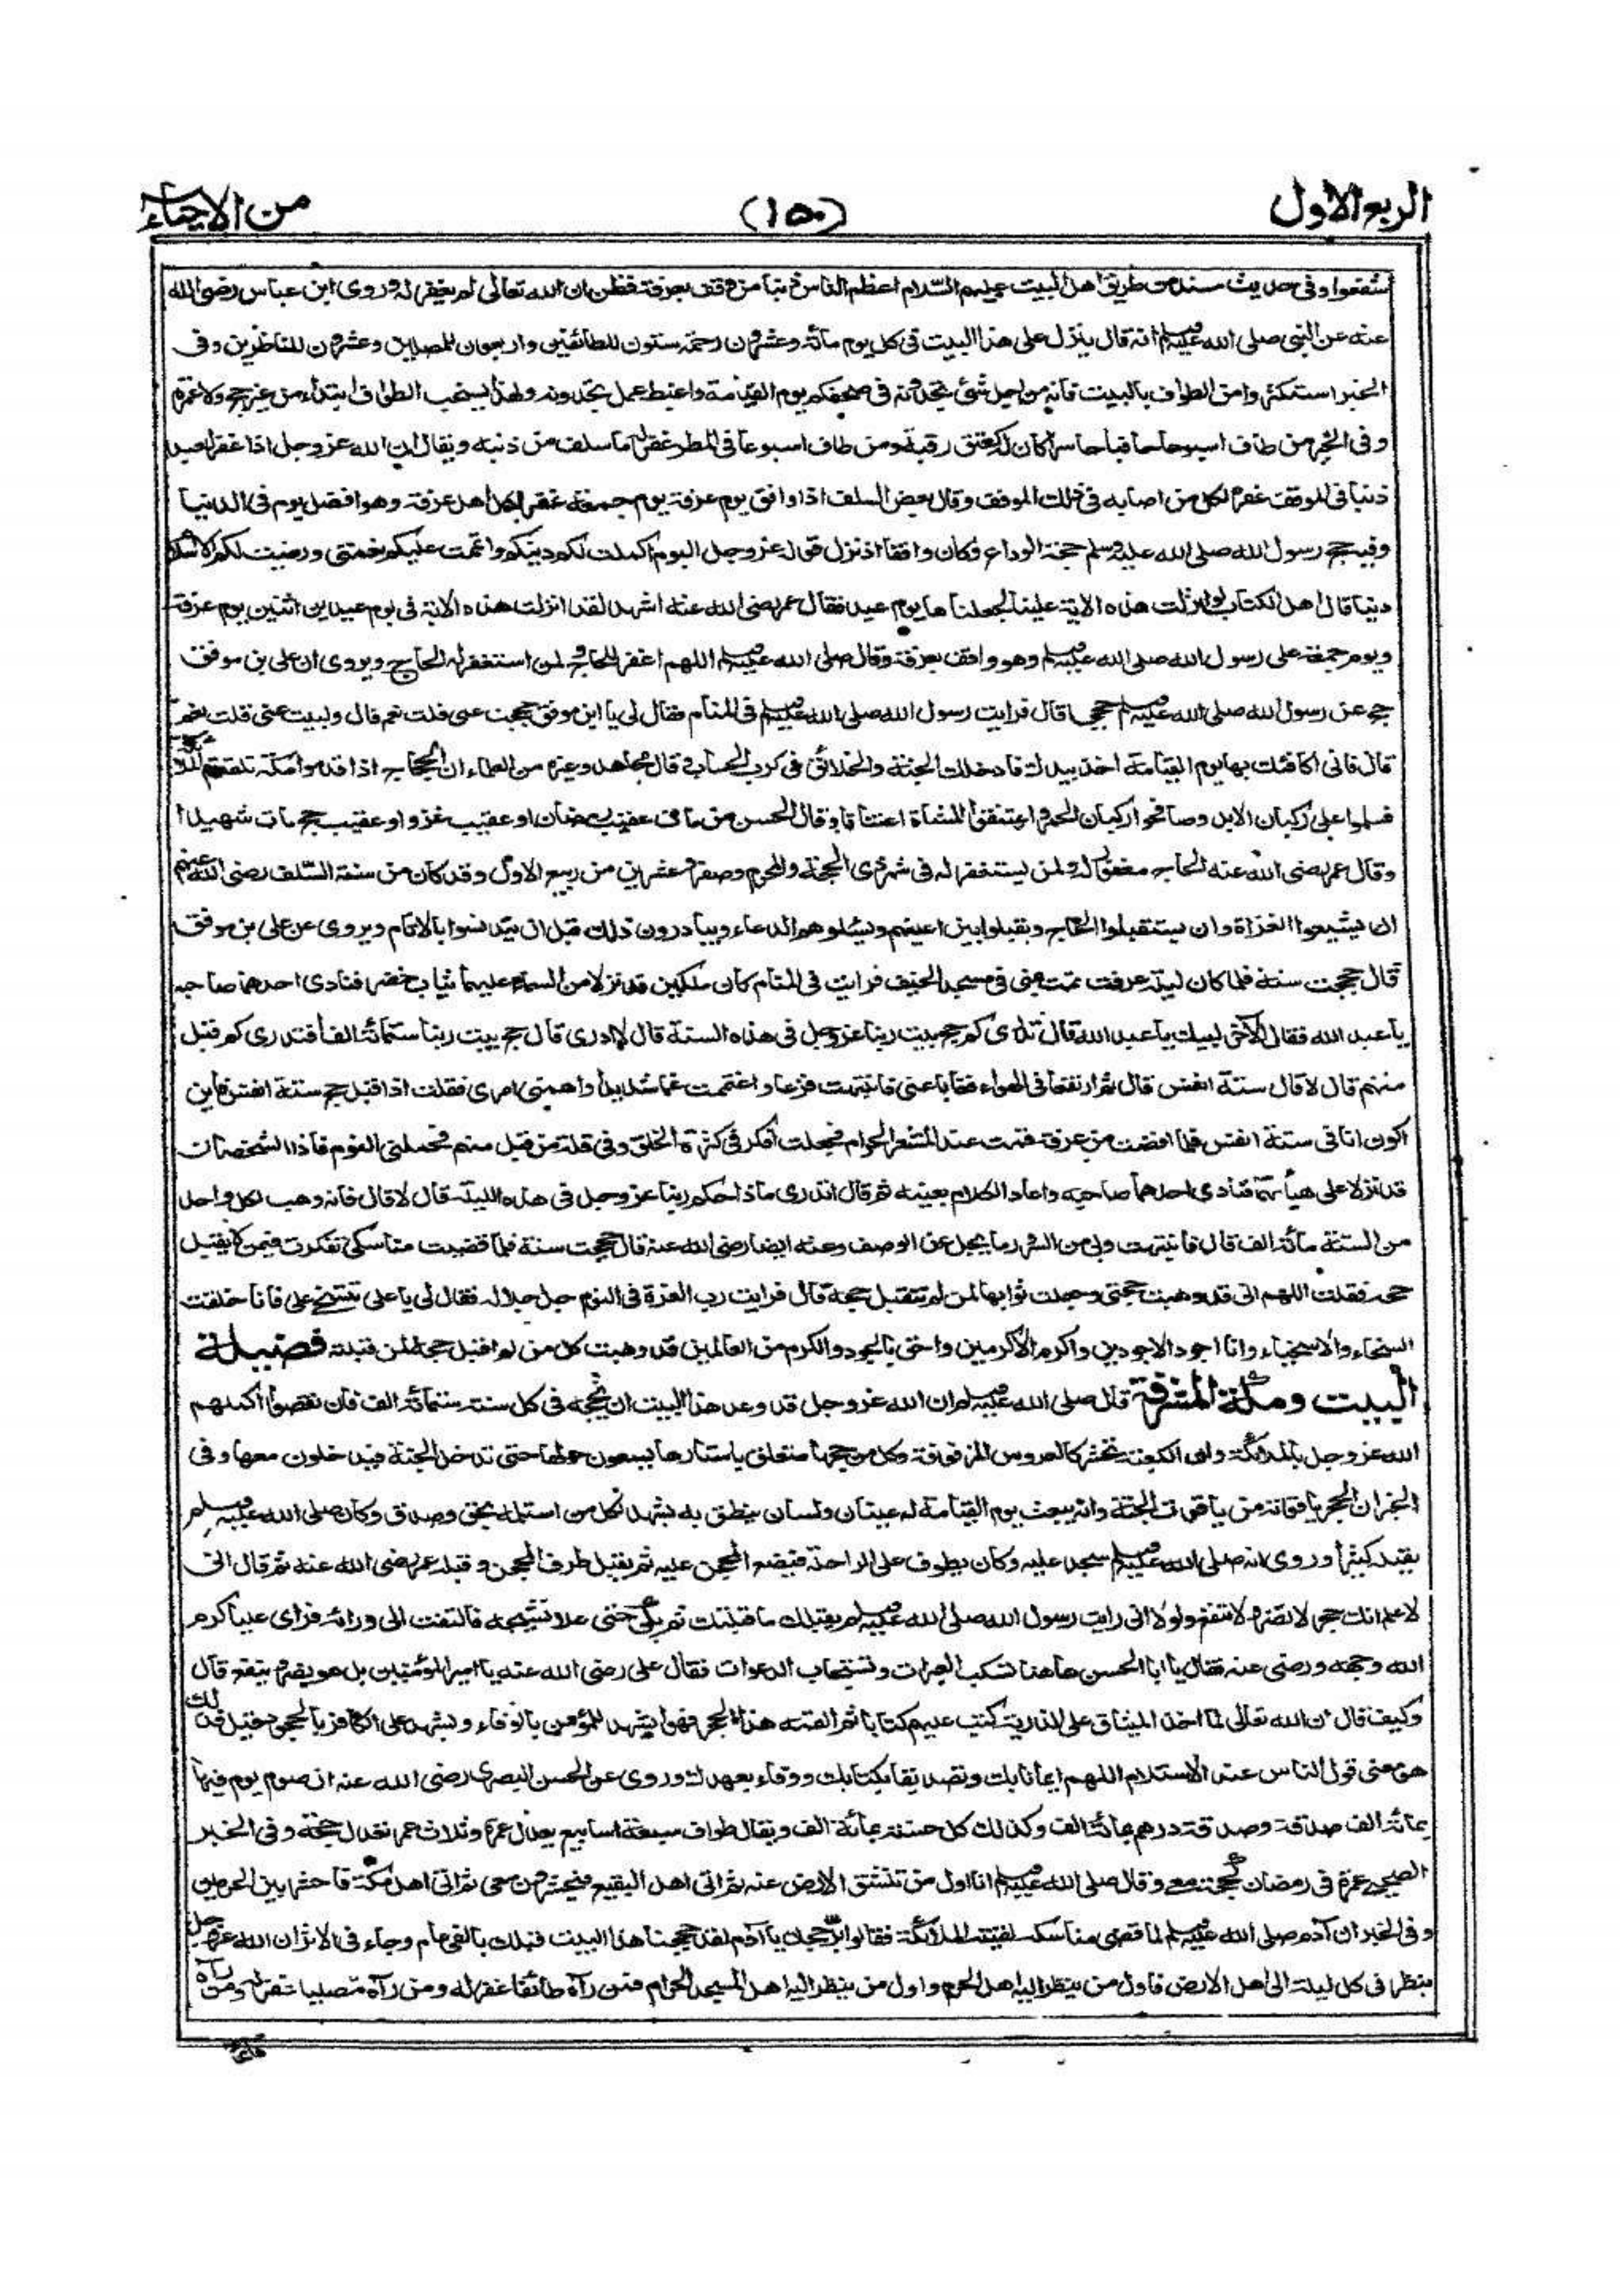 الربع الاول
(١٥٠)
من الاحياء
شفعوا وفى حديث مسند من طريق اهل البيت عليهم السّلام اعظم الناس ذنبا من وقف بعرفة فظن ان الله تعالى لم يغفر له وروى ابن عباس رضى الله
عنه عن النبى صلى الله عليه وسلم انه قال ينزل على هذا البيت فى كل يوم مائة وعشرون رحمة ستون للطائفين واربعون للمصلين وعشرون للناظرين وفى
الخبر استكثروا من الطواف بالبيت فانه من اجل شئ تجدونه فى صحفكم يوم القيامة واغبط عمل تجدونه ولهذا يستحب الطواف ابتداء من غير حج ولا عمرة
وفى الخبر من طاف اسبوعا حافيا حاسرا كان له كعتق رقبة ومن طاف اسبوعا فى المطر غفر له ما سلف من ذنبه ويقال ان الله عز وجل اذا غفر لعبد
ذنبا فى الموقف غفره لكل من اصابه فى ذلك الموقف وقال بعض السلف اذا وافق يوم عرفة يوم جمعة غفر لكل اهل عرفة وهو افضل يوم فى الدنيا
وفيه حج رسول الله صلى الله عليه وسلم حجة الوداع وكان واقفا اذ نزل قوله عز وجل اليوم اكملت لكم دينكم واتممت عليكم نعمتى ورضيت لكم الاسلام
دينا قال اهل الكتاب لو انزلت هذه الاية علينا لجعلناها يوم عيد فقال عمر رضى الله عنه اشهد لقد انزلت هذه الاية فى يوم عيدين اثنين يوم عرفة
ويوم جمعة على رسول الله صلى الله عليه وسلم وهو واقف بعرفة وقال صلى الله عليه وسلم اللهم اغفر للحاج ولمن استغفر له الحاج ويروى ان على بن موفق
حج عن رسول الله صلى الله عليه وسلم حججا قال فرايت رسول الله صلى الله عليه وسلم فى المنام فقال لى يا ابن موفق حججت عنى قلت نعم قال ولبيت عنى قلت نعم
قال فانى اكافئك بها يوم القيامة اخذ بيدك فادخلك الجنة والخلائق فى كرب الحساب وقال مجاهد وغيره من العلماء ان الحجاج اذا قدموا مكة تلقتهم الملائكة
فسلموا على ركبان الابل وصافحوا ركبان الحمر واعتنقوا المشاة اعتناقا وقال الحسن من مات عقيب رمضان او عقيب غزو او عقيب حج مات شهيدا
وقال عمر رضى الله عنه الحاج مغفور له ولمن يستغفر له فى شهر ذى الحجة والمحرم وصفر وعشرين من ربيع الاول وقد كان من سنة السّلف رضى الله عنهم
ان يشيعوا الغزاة وان يستقبلوا الحاج ويقبلوا بين اعينهم ويسئلوهم الدعاء ويبادرون ذلك قبل ان يتدنسوا بالاثام ويروى عن على بن موفق
قال حججت سنة فلما كان ليلة عرفة نمت بمنى فى مسجد الخيف فرايت فى المنام كان ملكين قد نزلا من السماء عليهما ثياب خضر فنادى احدهما صاحبه
يا عبد الله فقال الآخر لبيك يا عبد الله قال تدرى كم حج بيت ربنا عز وجل فى هذه السنة قال لا ادرى قال حج بيت ربنا ستمائة الف أفتدرى كم قبل
منهم قال لا قال ستة انفس قال ثم ارتفعا فى الهواء فغابا عنى فانتبهت فزعا واغتممت غما شديدا واهمنى امرى فقلت اذا قبل حج ستة انفس فاين
اكون انا فى ستة انفس فلما افضت من عرفة قمت عند المشعر الحرام فجعلت أفكر فى كثرة الخلق وفى قلة من قبل منهم فحملنى النوم فاذا الشخصان
قد نزلا على هيأتهما فنادى احدهما صاحبه واعاد الكلام بعينه ثم قال اتدرى ماذا حكم ربنا عز وجل فى هذه الليلة قال لا قال فانه وهب لكل واحد
من الستة مائة الف قال فانتبهت وبى من السرور ما يجل عن الوصف وعنه ايضا رضى الله عنه قال حججت سنة فلما قضيت مناسكى تفكرت فيمن لا يقبل
حجه فقلت اللهم انى قد وهبت حجتى وجعلت ثوابها لمن لم تتقبل حجه قال فرايت رب العزة فى النوم جل جلاله فقال لى يا على تتسخى على فانا خلقت
السخاء والاسخياء وانا اجود الاجودين واكرم الاكرمين واحق بالجود والكرم من العالمين قد وهبت كل من لم اقبل حجه لمن قبلته فضيلة
البيت ومكة المشرفة قال صلى الله عليه وسلم ان الله عز وجل قد وعد هذا البيت ان يحجه فى كل سنة ستمائة الف فان نقصوا أكملهم
الله عز وجل بالملائكة وان الكعبة تحشر كالعروس المزفوفة وكل من حجها متعلق باستارها يسعون حولها حتى تدخل الجنة فيدخلون معها وفى
الخبر ان الحجر ياقوتة من ياقوات الجنة وانه يبعث يوم القيامة له عينان ولسان ينطق به يشهد لكل من استلمه بحق وصدق وكان صلى الله عليه وسلم
يقبله كثيرا وروى انه صلى الله عليه وسلم سجد عليه وكان يطوف على الراحلة فيضع المحجن عليه ثم يقبل طرف المحجن وقبله عمر رضى الله عنه ثم قال انى
لاعلم انك حجر لا تضر ولا تنفع ولولا انى رايت رسول الله صلى الله عليه وسلم يقبلك ما قبلتك ثم بكى حتى علا نشيجه فالتفت الى ورائه فراى عليا كرم
الله وجهه ورضى عنه فقال يا ابا الحسن هاهنا تسكب العبرات وتستجاب الدعوات فقال على رضى الله عنه يا امير المؤمنين بل هو يضر وينفع قال
وكيف قال ان الله تعالى لما اخذ الميثاق على الذرية كتب عليهم كتابا ثم القمه هذا الحجر فهو يشهد للمؤمن بالوفاء ويشهد على الكافر بالجحود قيل فذلك
هو معنى قول الناس عند الاستلام اللهم ايمانا بك وتصديقا بكتابك ووفاء بعهدك وروى عن الحسن البصرى رضى الله عنه ان صوم يوم فيها
بمائة الف وصدقة درهم بمائة الف وكذلك كل حسنة بمائة الف ويقال طواف سبعة اسابيع يعدل عمرة وثلاث عمر تعدل حجة وفى الخبر
الصحيح عمرة فى رمضان كحجة معى وقال صلى الله عليه وسلم انا اول من تنشق الارض عنه ثم اتى اهل البقيع فيحشرون معى ثم اتى اهل مكة فاحشر بين الحرمين
وفى الخبر ان آدم صلى الله عليه وسلم لما قضى مناسكه لقيته الملائكة فقالوا برّ حجك يا آدم لقد حججنا هذا البيت قبلك بالفى عام وجاء فى الاثر ان الله عز وجل
ينظر فى كل ليلة الى اهل الارض فاول من ينظر اليه اهل الحرم واول من ينظر اليه اهل المسجد الحرام فمن رآه طائفا غفر له ومن رآه مصليا غفر له ومن رآه
قائما